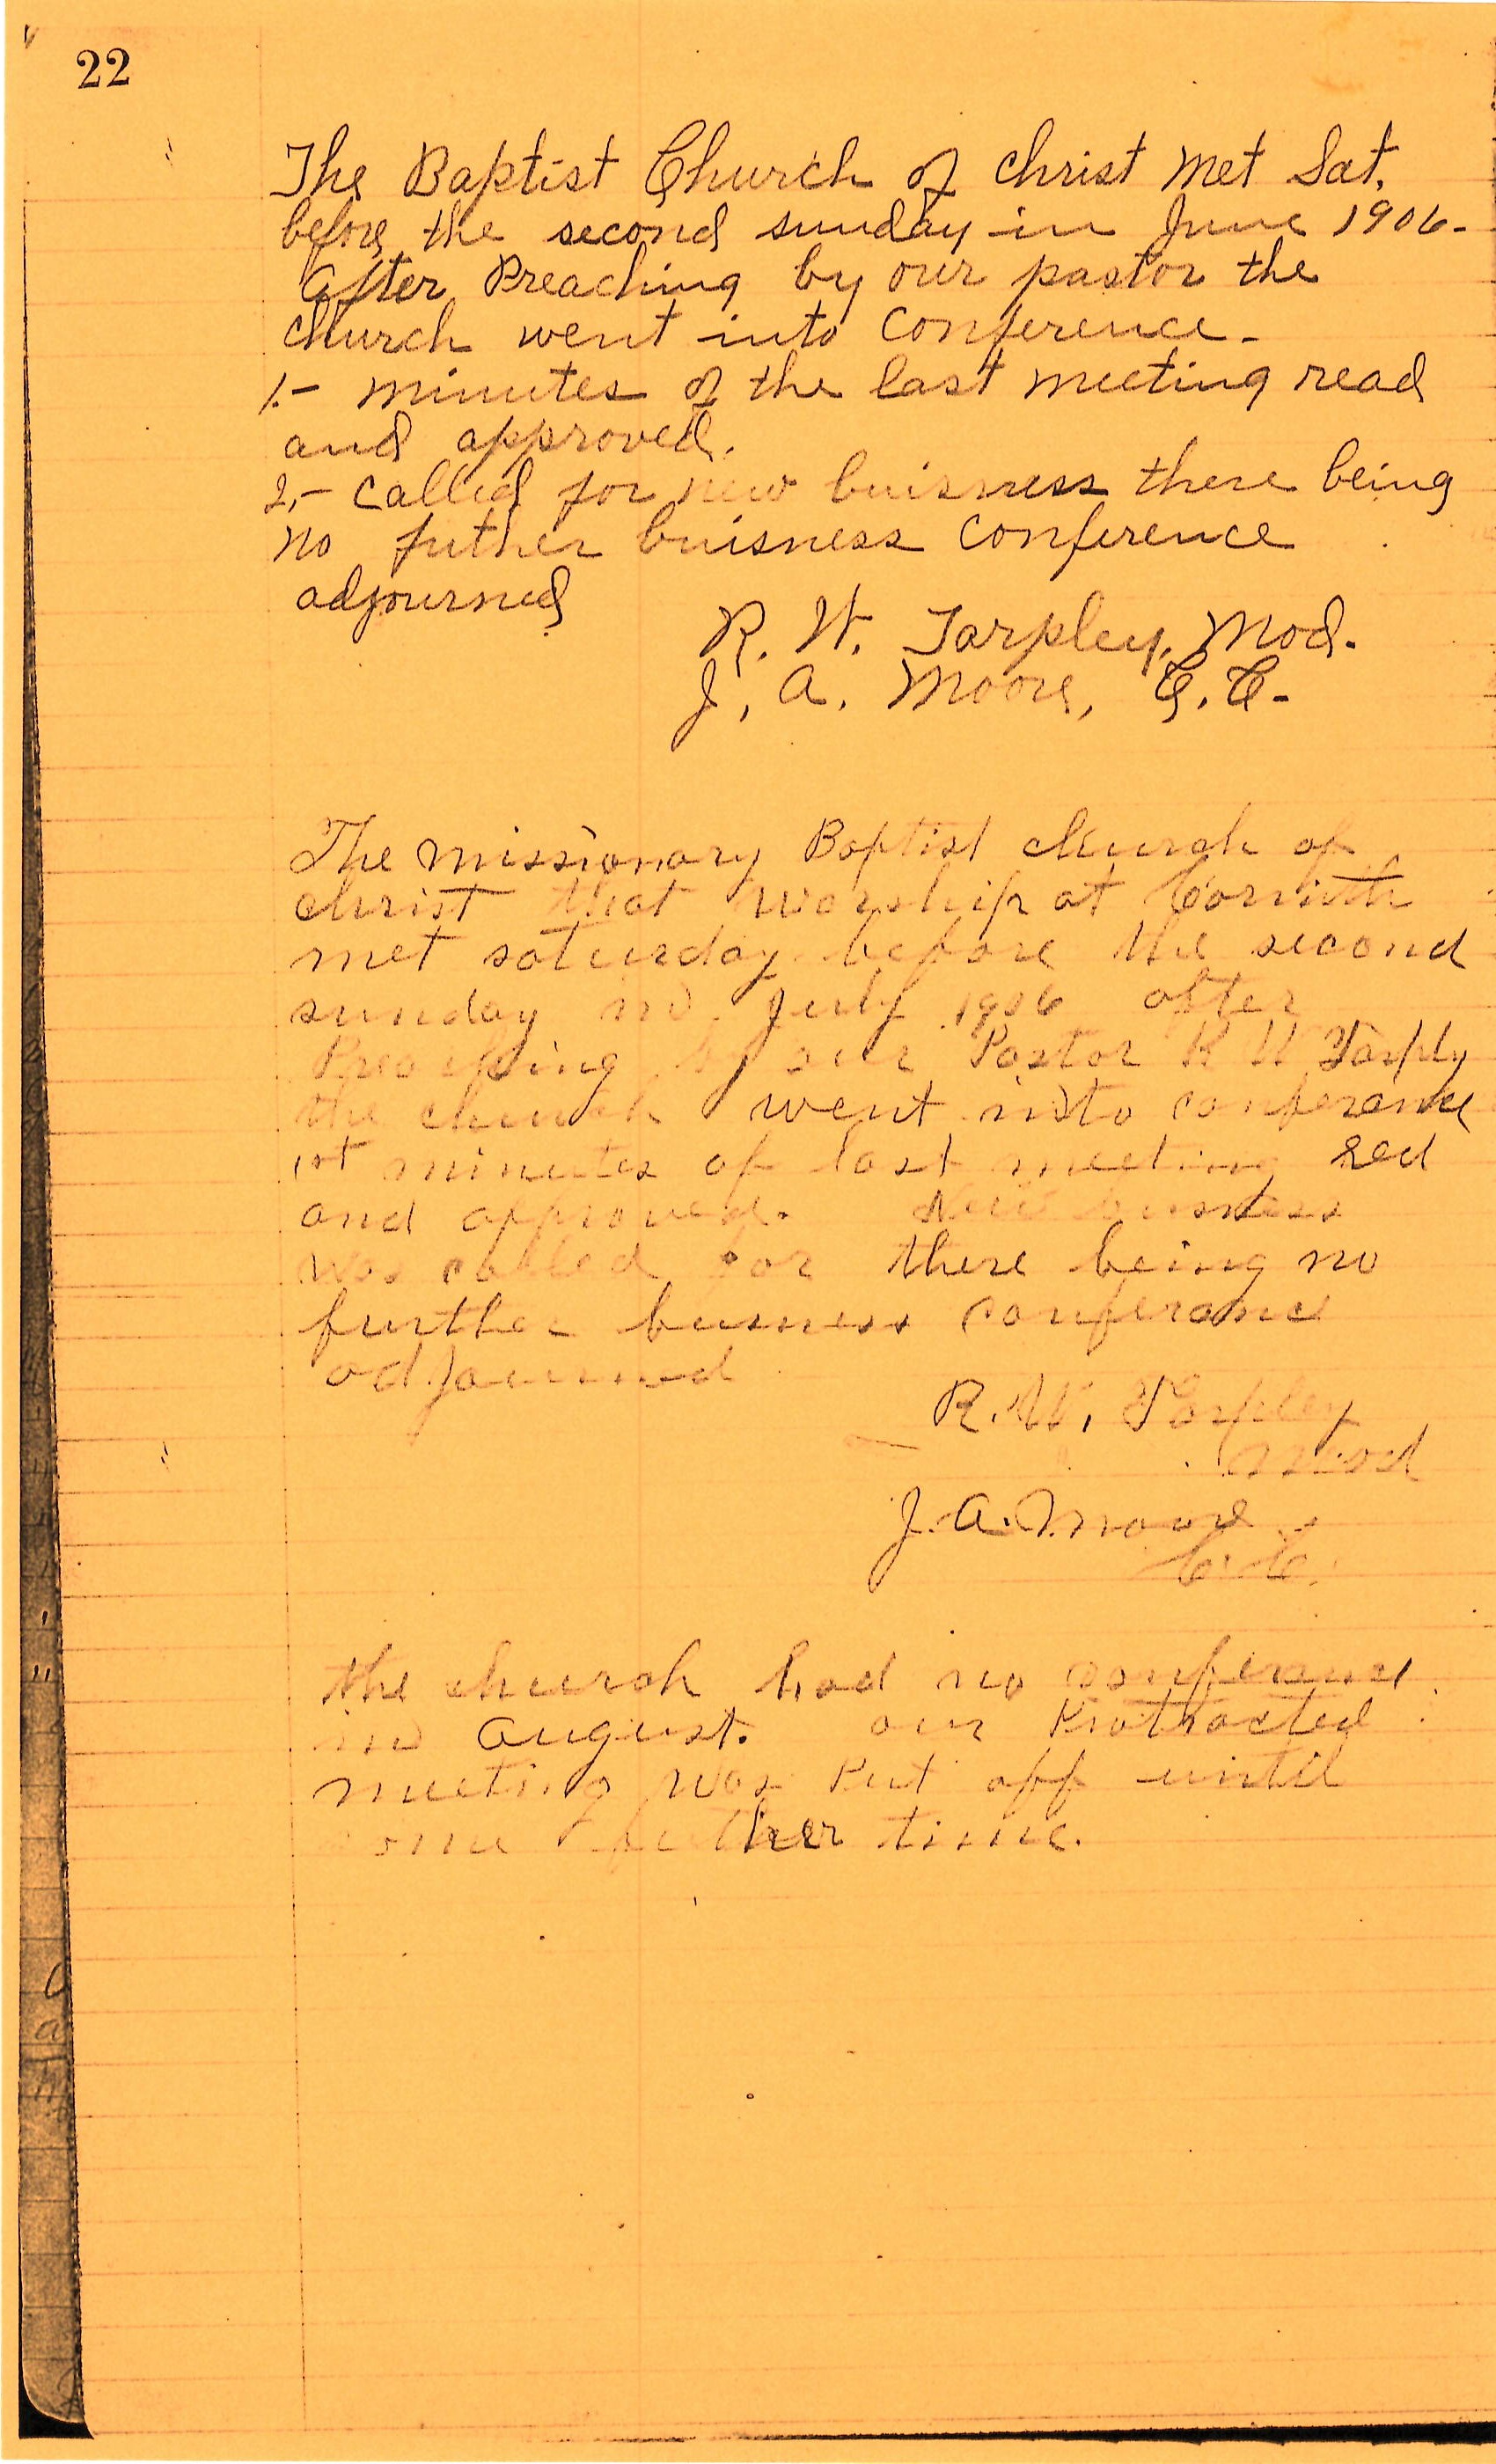 22
The Baptist Church of Christ Met Sat.
before the second sunday in June 1906-
After Preaching by our pastor the
Church went into Conference-
1.- minutes of the last meeting read
and approved.
2.- Called for new buisness there being
no futher buisness Conference
adjourned
R. W. Tarpley, Mod.
J. A. Moore, C. C.-
The missionary Baptist church of
christ that worship at Corinth
met saturday before the second
sunday in July 1906 after
Preaching by our Pastor R W Tarply
the church went into conference
1st minutes of last meeting red
and approved. New busness
was called for there being no
further busness conferance
adjourned
R. W. Tarpley
Mod
J. A. Moore
C. C.
the church had no conferance
in August. our Protracted
meeting was Put off until
some futher time.